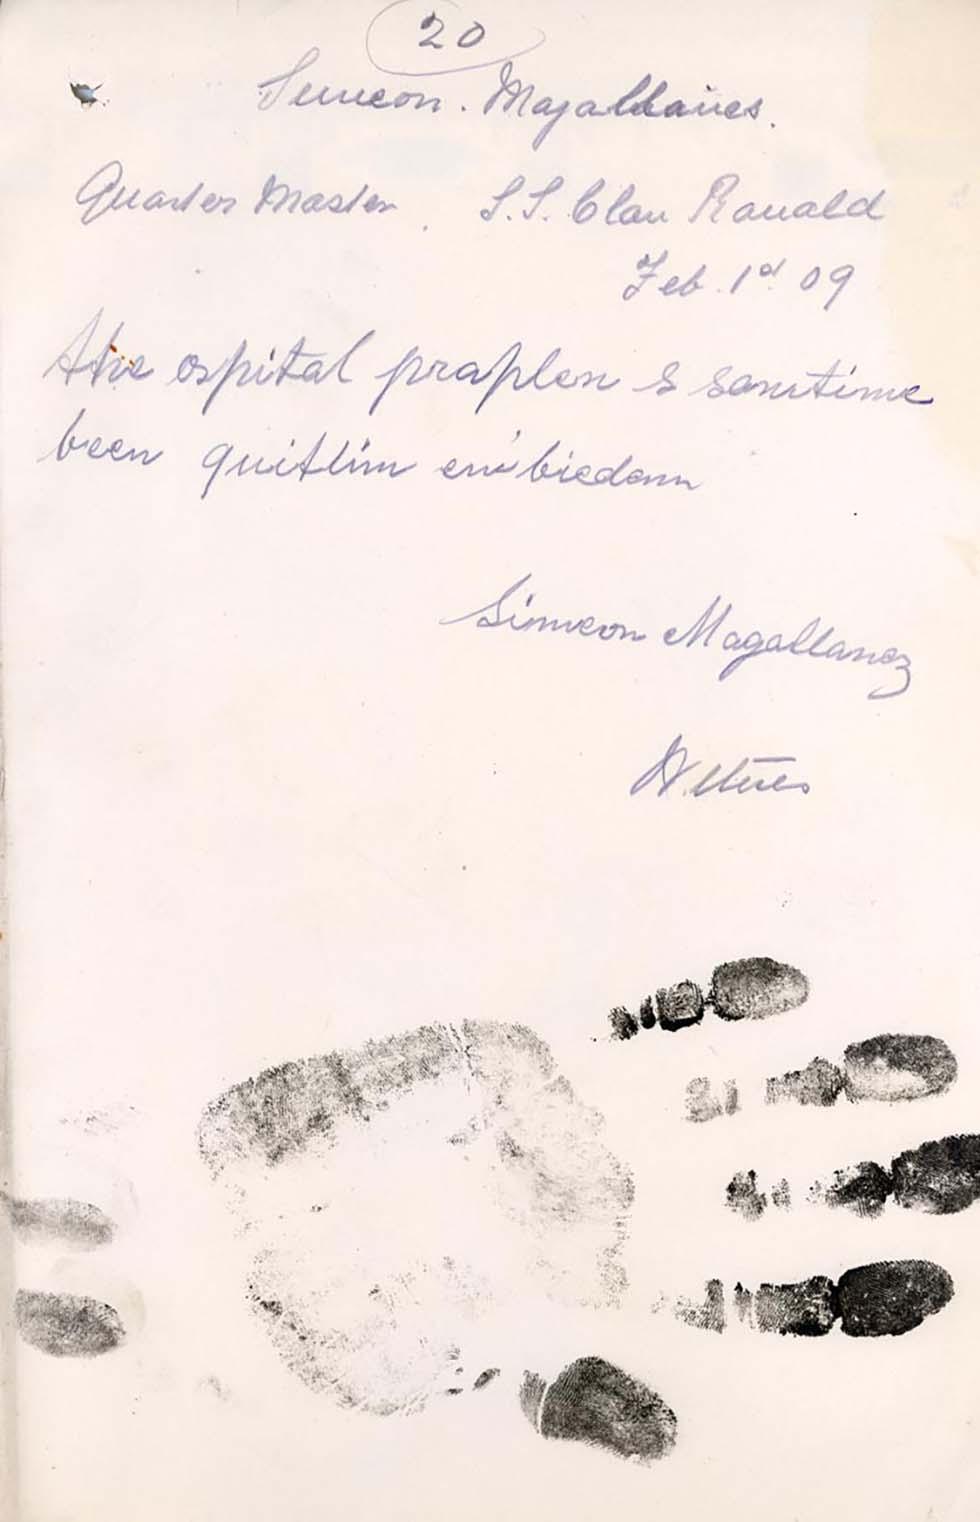 20
Simeon. Magallanes.
Quarter Master. S.S. Clan Ranald
Feb. 1st 09
the ospital praplen s somtime
been quitlim
Simeon Magallanez